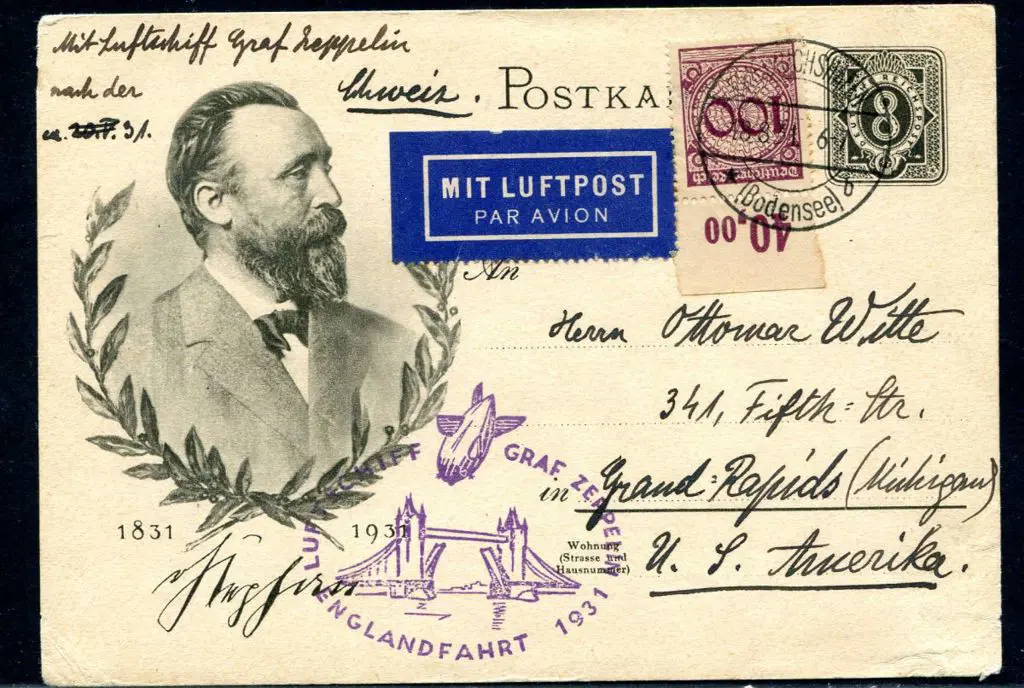 Mit Luftschiff Graf Zeppelin
nach der Schweiz.
ca. 31.
POSTKA
DEUTSCHE REICHSPOST
8
100
Deutsches Reich
40.00
(Bodensee)
b
MIT LUFTPOST
PAR AVION
An
Herrn Ottomar Witte
341, Fifth=Str.
in Grand=Rapids (Michigan)
Wohnung
(Strasse und
Hausnummer)
U. S. Amerika.
1831 1931
Stephan
LUFTSCHIFF GRAF ZEPPELIN
ENGLANDFAHRT 1931